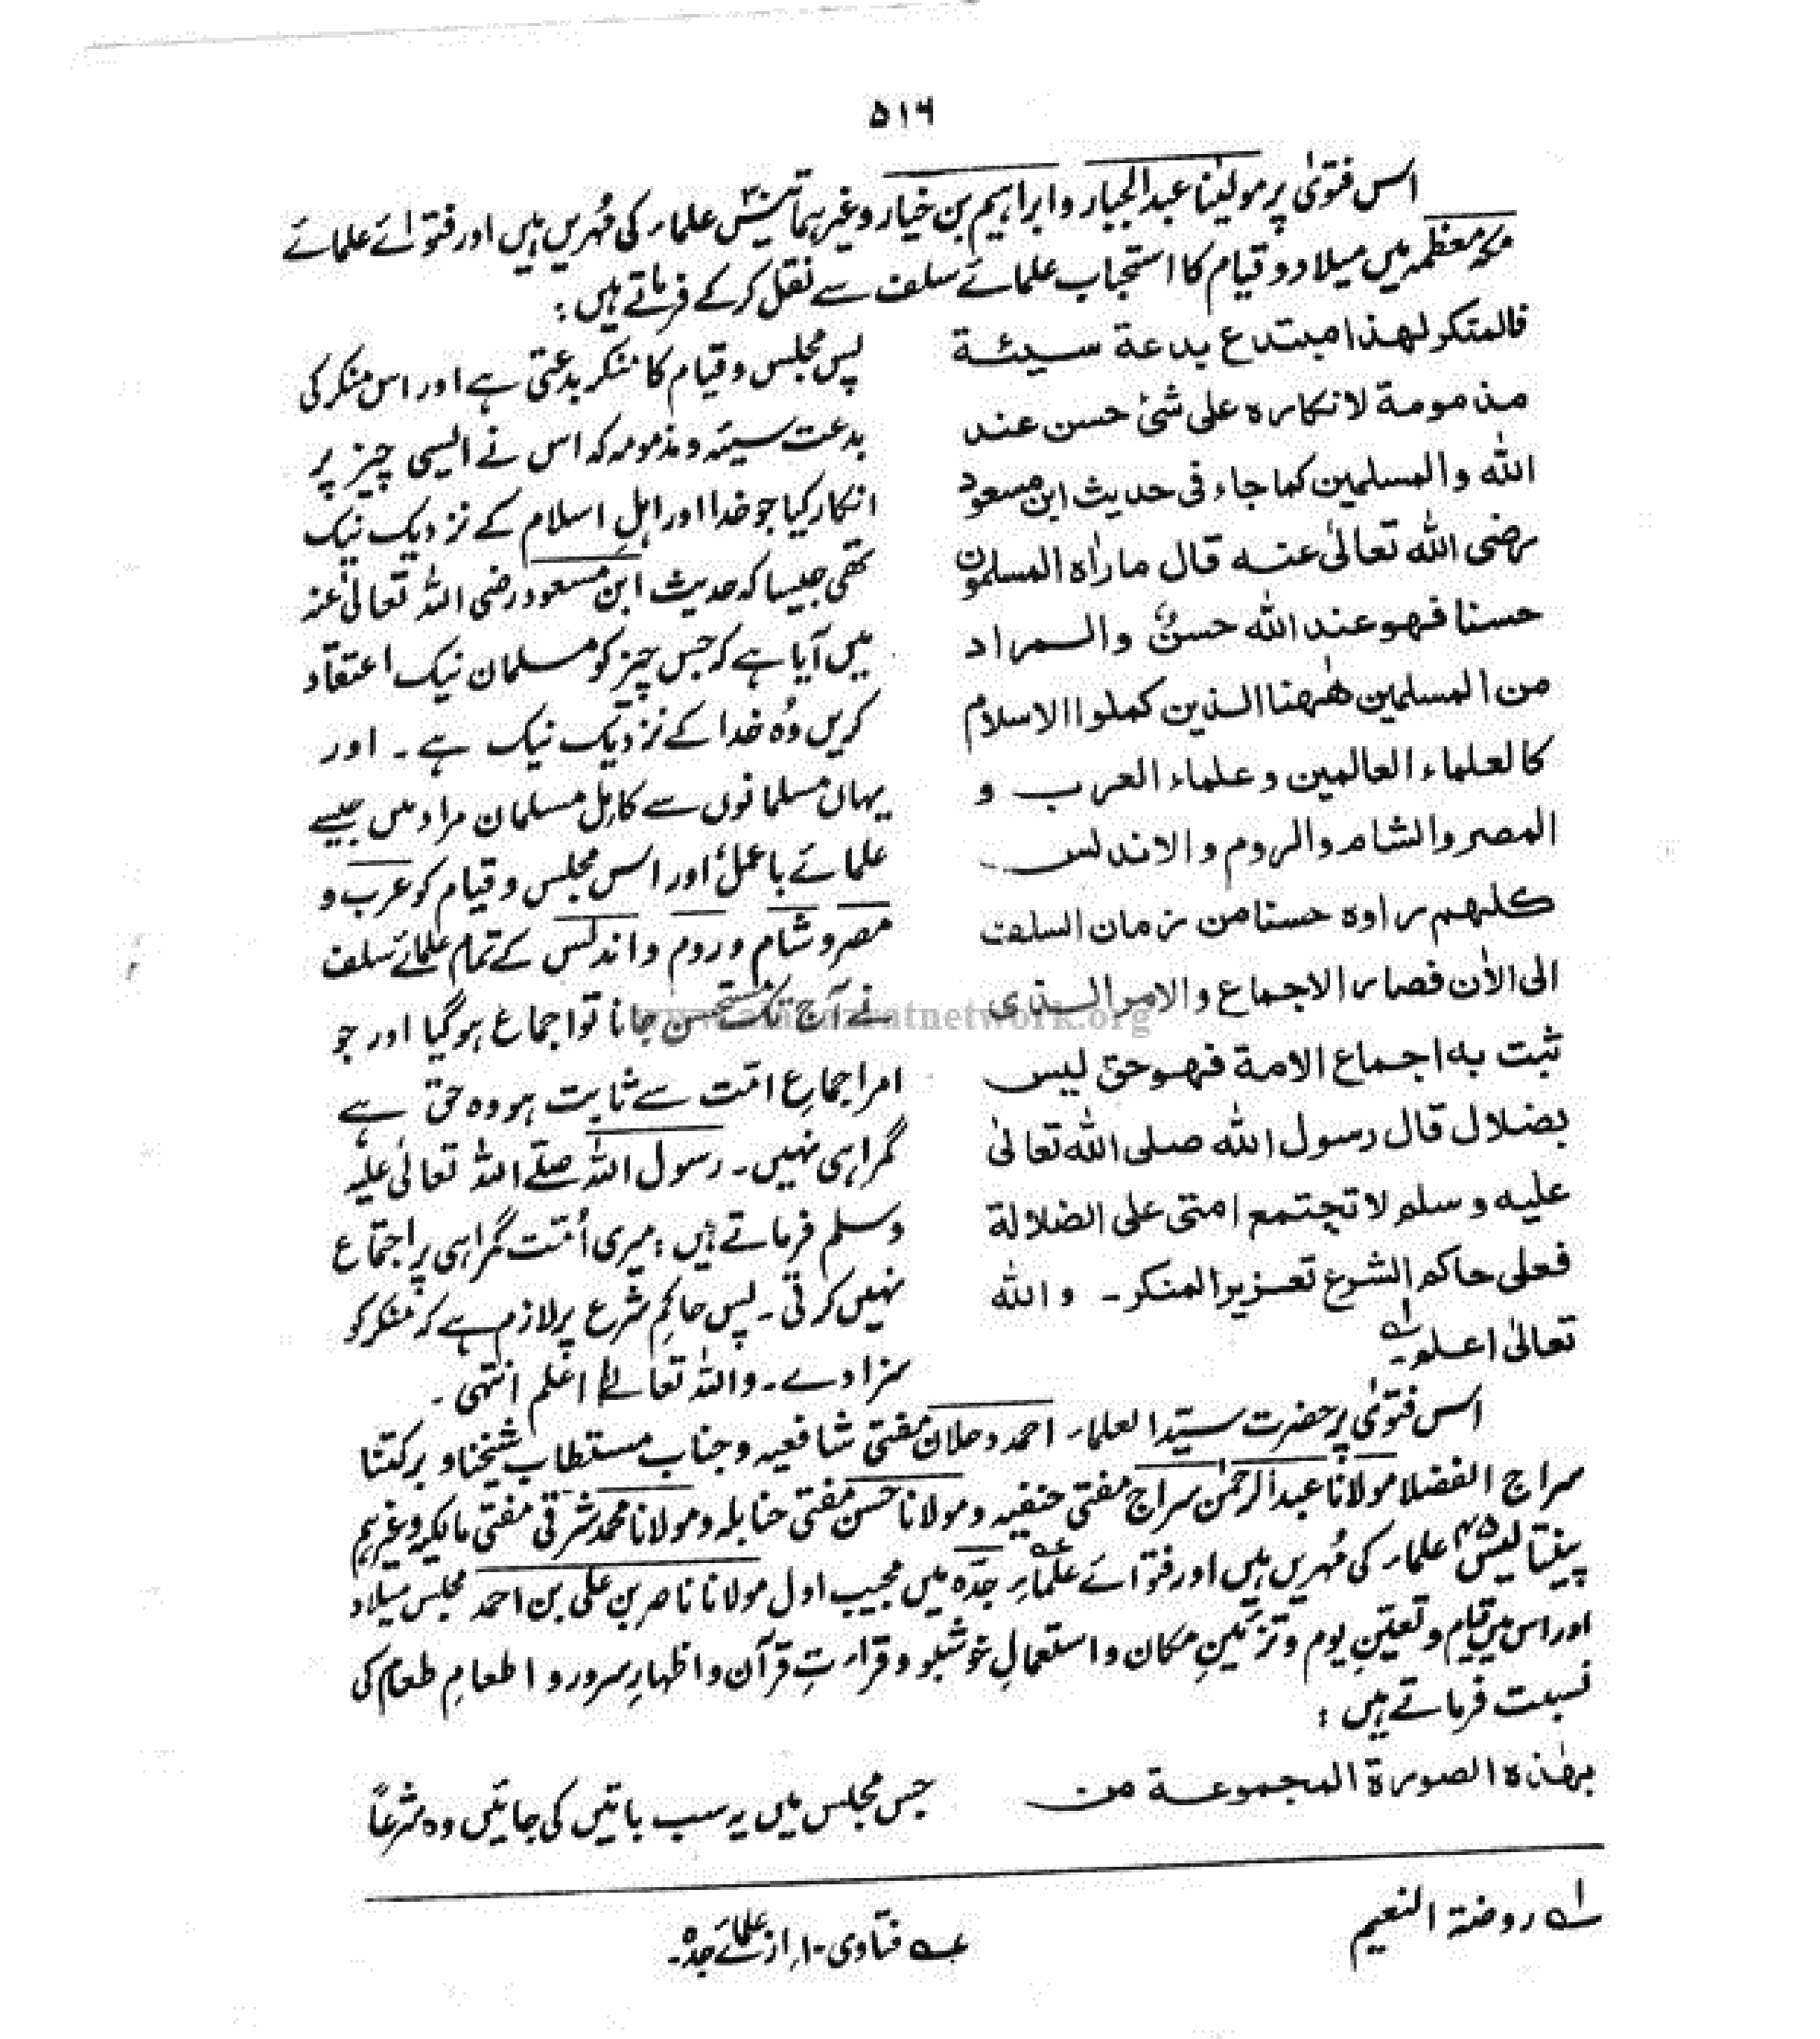 ۵۱۶
اس فتوٰی پر مولیٰنا عبدالجبار و ابراہیم بن خیار وغیرہما تیس۳۰ علماء کی مُہریں ہیں اور فتوائے علمائے
مکہ معظمہ میں میلاد و قیام کا استحباب علمائے سلف سے نقل کرکے فرماتے ہیں :
فالمنكر لهذا مبتدع بدعة سيئة
مذمومة لانكاره على شئ حسن عند
الله والمسلمين كما جاء فى حديث ابن مسعود
رضى الله تعالىٰ عنه قال ماراٰه المسلمون
حسنا فهو عند الله حسنٌ والمراد
من المسلمين هٰهنا الذين كملوا الاسلام
كالعلماء العالمين وعلماء العرب و
المصر والشام والروم والاندلس
كلهم راوه حسنا من زمان السلف
الى الاٰن فصار الاجماع والامر الذى
ثبت به اجماع الامة فهو حق ليس
بضلال قال رسول الله صلى الله تعالىٰ
عليه وسلم لا تجتمع امتى على الضلالة
فعلى حاكم الشرع تعزير المنكر۔ والله
تعالىٰ اعلم۔ لہ
پس مجلس و قیام کا منکر بدعتی ہے اور اس منکر کی
بدعت سیئہ و مذمومہ کہ اس نے ایسی چیز پر
انکار کیا جو خدا اور اہلِ اسلام کے نزدیک نیک
تھی جیسا کہ حدیث ابن مسعود رضی اللہ تعالیٰ عنہ
میں آیا ہے کہ جس چیز کو مسلمان نیک اعتقاد
کریں وُہ خدا کے نزدیک نیک ہے۔ اور
یہاں مسلمانوں سے کامل مسلمان مراد ہیں جیسے
علمائے باعمل، اور اس مجلس و قیام کو عرب و
مصر و شام و روم و اندلس کے تمام علمائے سلف
نے آج تک مستحسن جانا تو اجماع ہوگیا اور جو
امر اجماعِ امّت سے ثابت ہو وہ حق ہے
گمراہی نہیں۔ رسول اللہ صلّے اللہ تعالیٰ علیہ
وسلم فرماتے ہیں : میری اُمّت گمراہی پر اجتماع
نہیں کرتی۔ پس حاکمِ شرع پر لازم ہے کہ منکر کو
سزا دے۔ واللہ تعالےٰ اعلم انتہی۔
اس فتوٰی پر حضرت سیّد العلماء احمد دحلان مفتی شافعیہ و جناب مستطاب شیخنا و برکتنا
سراج الفضلا مولانا عبدالرحمٰن سراج مفتی حنفیہ و مولانا حسن مفتی حنابلہ و مولانا محمد شرقی مفتی مالکیہ وغیرہم
پینتالیس۴۵ علماء کی مُہریں ہیں اور فتوائے علماءِ جدّہ میں مجیب اول مولانا ناصر بن علی بن احمد مجلس میلاد
اور اس میں قیام و تعیّنِ یوم و تزئینِ مکان و استعمالِ خوشبو و قراءتِ قرآن و اظہارِ سرور و اطعامِ طعام کی
نسبت فرماتے ہیں :
بهٰذه الصورة المجموعة من
جس مجلس میں یہ سب باتیں کی جائیں وہ شرعاً
لہ روضۃ النعیم
عہ فتاوی ۱۰ از علمائے جدہ۔